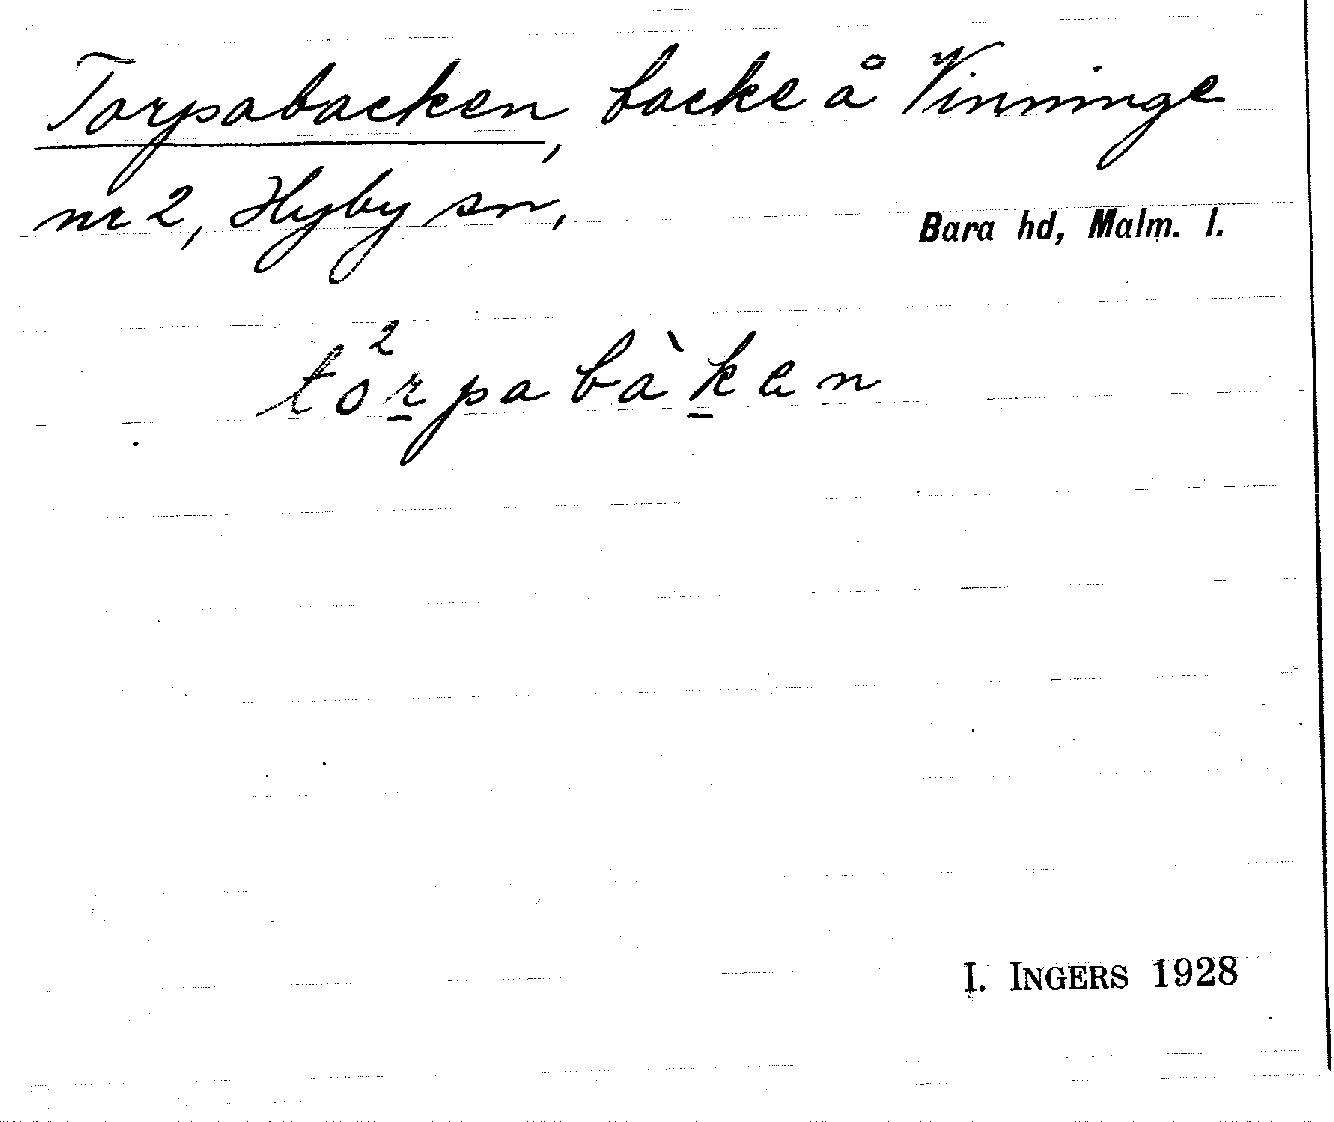 Torpabacken, backe å Vinninge
nr 2, Hyby sn,
Bara hd, Malm. l.
to²r̠pabàk̠en
I. INGERS 1928